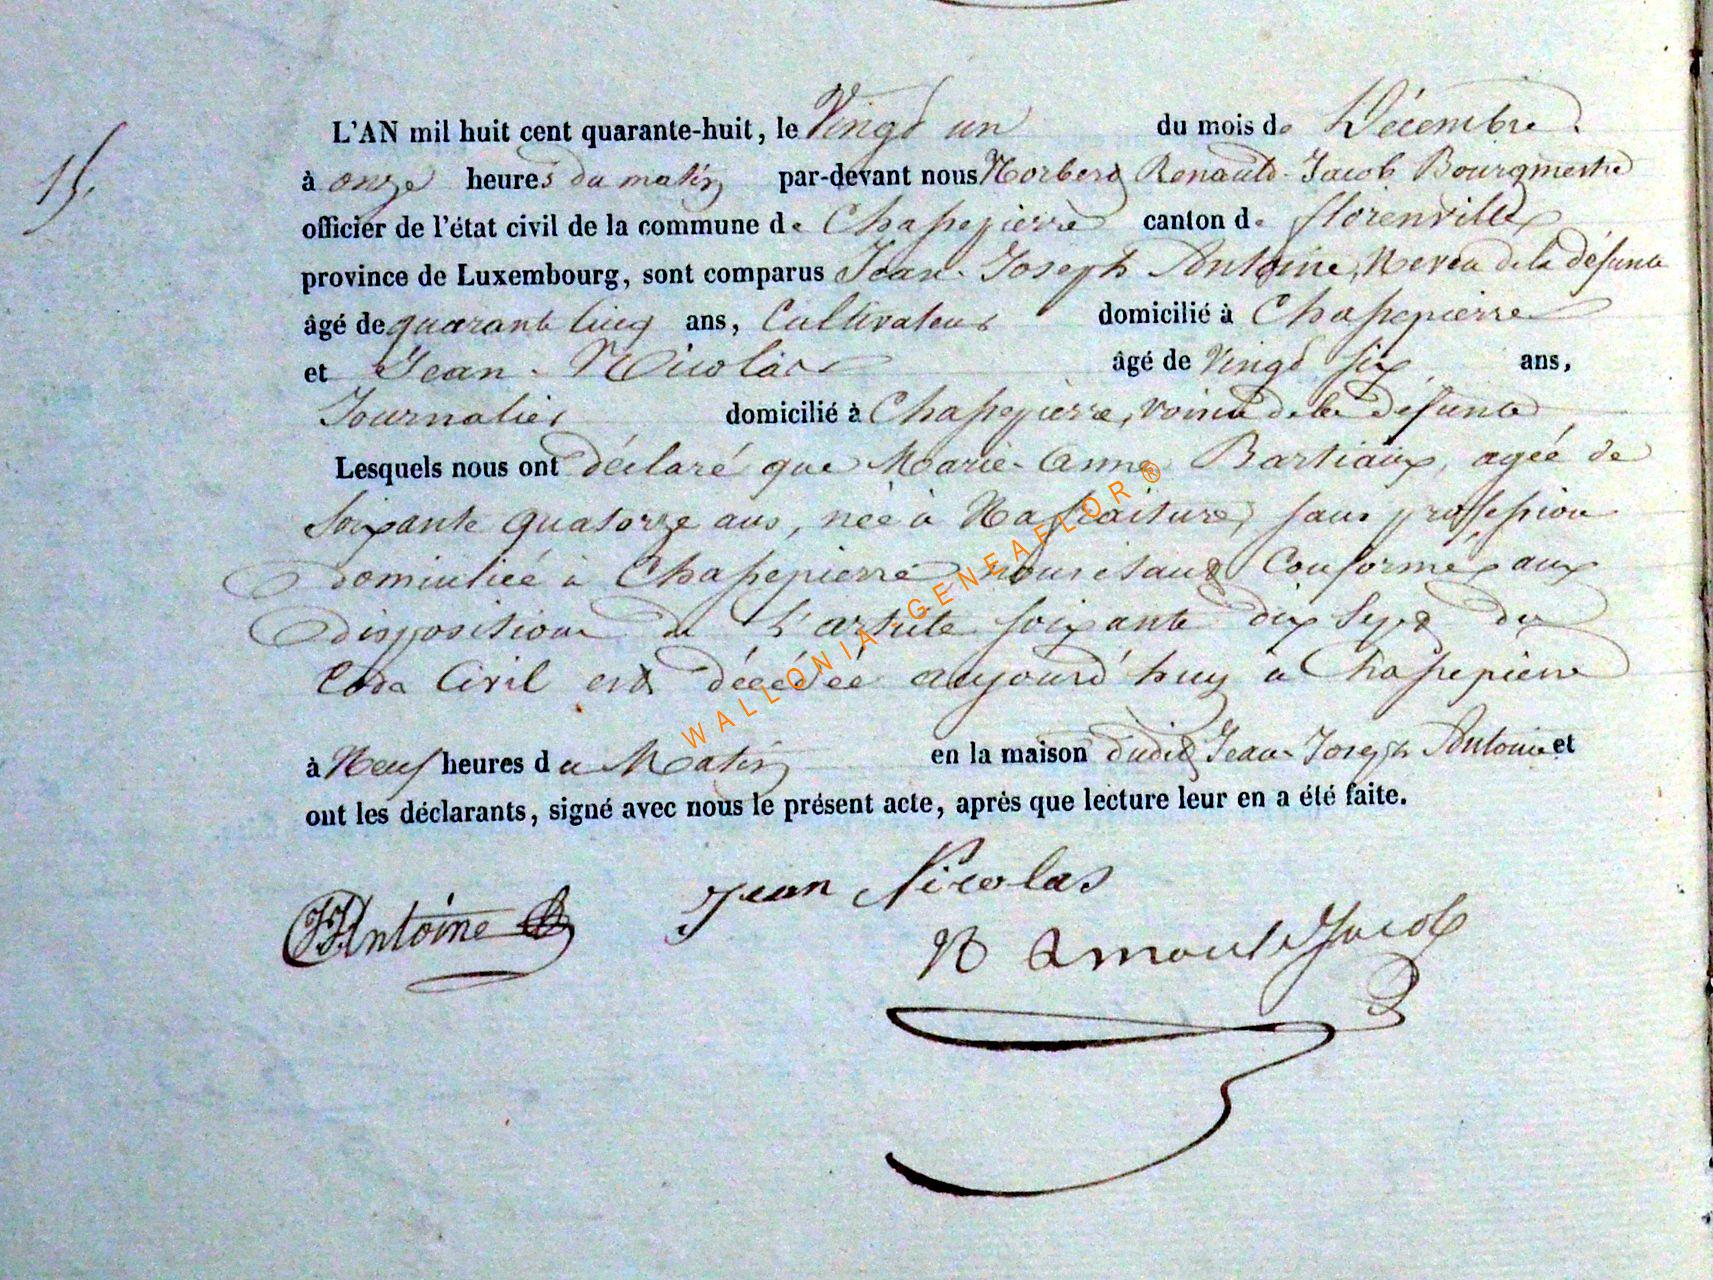 15.
L'AN mil huit cent quarante-huit, le Vingt un du mois de Décembre.
à onze heures du matin par-devant nous Norbert Renauld Jacob Bourgmestre
officier de l'état civil de la commune de Chassepierre canton de florenville
province de Luxembourg, sont comparus Jean-Joseph Antoine, Neveu de la défunte
âgé de quarante Cinq ans, Cultivateur domicilié à Chassepierre
et Jean-Nicolas âgé de Vingt six ans,
Journalier domicilié à Chassepierre, voisin de la défunte
Lesquels nous ont déclaré que Marie-Anne Bartiaux, agée de
Soixante quatorze ans, née à sans profession
domiciliée à Chassepierre nous étant Conformé aux
disposition de l'article soixante dix Sept du
Code Civil est décédée aujourd'huy à Chassepierre
à Neuf heures du Matin en la maison dudit Jean-Joseph Antoine et
ont les déclarants, signé avec nous le présent acte, après que lecture leur en a été faite.
JJAntoine Jean Nicolas
N Jacob
WALLONIA-GENEAFLOR®